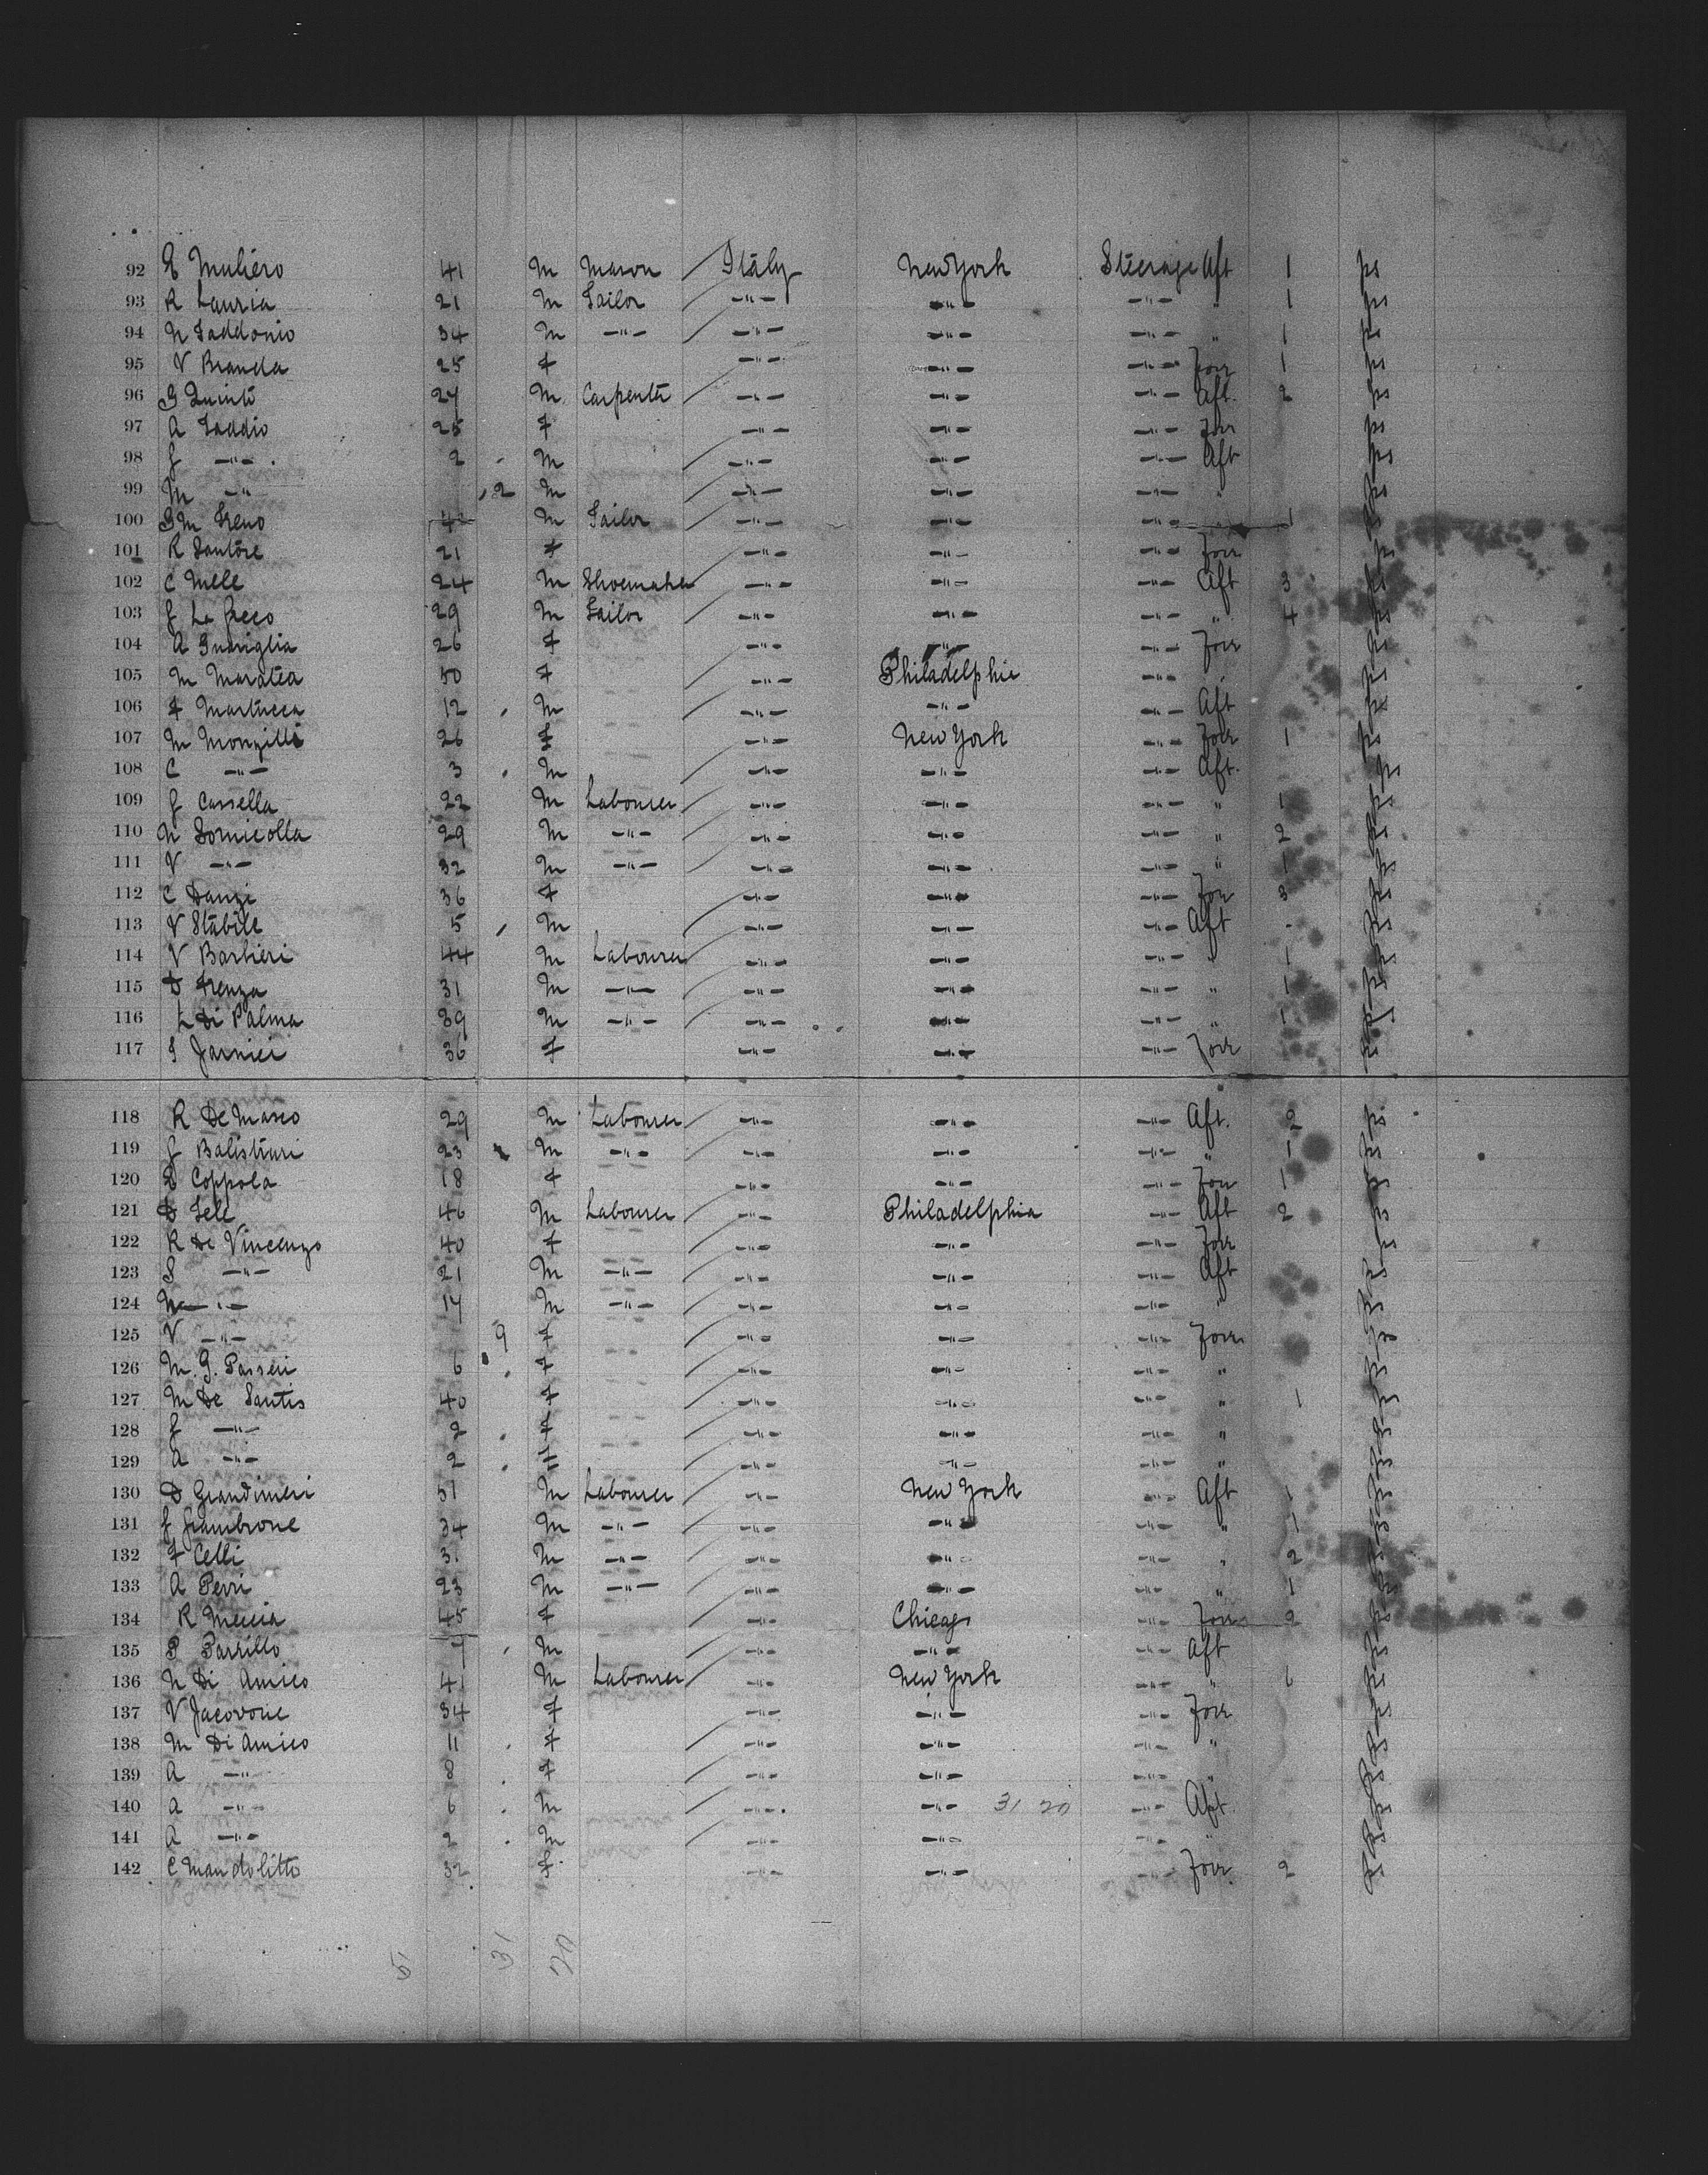 92 E Muliero 41 M Mason Italy New York Steerage Aft 1 ps
93 R Lauria 21 M Tailor —"— —"— —"— " 1 ps
94 N Taddonio 34 M —"— —"— —"— —"— " 1 ps
95 V Branda 25 F —"— —"— —"— Forr 1 ps
96 G Quinto 24 M Carpenter —"— —"— —"— Aft. 2 ps
97 A Taddio 25 F —"— —"— —"— Forr ps
98 G —"— 2 M —"— —"— —"— Aft ps
99 M —"— 2 M —"— —"— —"— " ps
100 G M Treno M Tailor —"— —"— —"— " 1
101 R Santore 21 F —"— —"— —"— Forr ps
102 C Mele 24 M Shoemaker —"— —"— —"— Aft 3 ps
103 G La Greco 29 M Tailor —"— —"— —"— " 4 ps
104 A 26 F —"— —"— —"— Forr ps
105 M Maratea 50 F —"— Philadelphia —"— " ps
106 F Martucca 12 M —"— —"— —"— Aft ps
107 M Monzilli 26 F —"— New York —"— Forr 1 ps
108 C —"— 3 M —"— —"— —"— Aft. ps
109 G Cassella 22 M Labourer —"— —"— —"— " 1 ps
110 N Sornicolla 29 M —"— —"— —"— —"— " 2 ps
111 V —"— 32 M —"— —"— —"— —"— " 1 ps
112 C Danzi 36 F —"— —"— —"— Forr 3 ps
113 V Stabile 5 M —"— —"— —"— Aft - ps
114 V Barbieri 44 M Labourer —"— —"— —"— " 1 ps
115 D Frenza 31 M —"— —"— —"— —"— " 1 ps
116 L Di Palma 39 M —"— —"— —"— —"— " 1 ps
117 36 F —"— —"— —"— Forr ps
118 R De Marco 29 M Labourer —"— —"— —"— Aft. 2 ps
119 G Balistrieri 23 M —"— —"— —"— —"— " 1 ps
120 E Coppola 18 F —"— —"— —"— Forr 1 ps
121 D Tele 46 M Labourer —"— Philadelphia —"— Aft 2 ps
122 R De Vincenzo 40 F —"— —"— —"— Forr ps
123 S —"— 21 M —"— —"— —"— —"— Aft ps
124 N —"— 14 M —"— —"— —"— —"— " ps
125 V —"— 9 F —"— —"— —"— Forr ps
126 M. G. Passeri 6 F —"— —"— —"— " ps
127 M De Santis 40 F —"— —"— —"— " 1 ps
128 G —"— 2 F —"— —"— —"— " ps
129 A —"— 2 —"— —"— —"— " ps
130 D Grandinieri 51 M Labourer —"— New York —"— Aft 1 ps
131 G Giambrone 34 M —"— —"— —"— —"— " 1 ps
132 F Celli M —"— —"— —"— —"— " 2 ps
133 A Perri 23 M —"— —"— —"— —"— " 1 ps
134 R Meccia 45 F —"— Chicago —"— Forr 2 ps
135 P Parrillo M —"— —"— —"— Aft ps
136 N Di Amico 41 M Labourer —"— New York —"— " ps
137 V Jacovone 34 F —"— —"— —"— Forr ps
138 M Di Amico 11 F —"— —"— —"— " ps
139 A —"— 8 F —"— —"— —"— " ps
140 A —"— 6 M —"— —"— 31 20 —"— Aft ps
141 A —"— 2 M —"— —"— —"— " ps
142 C Mandolitto 32 F —"— —"— —"— Forr 2 ps
51 31 20